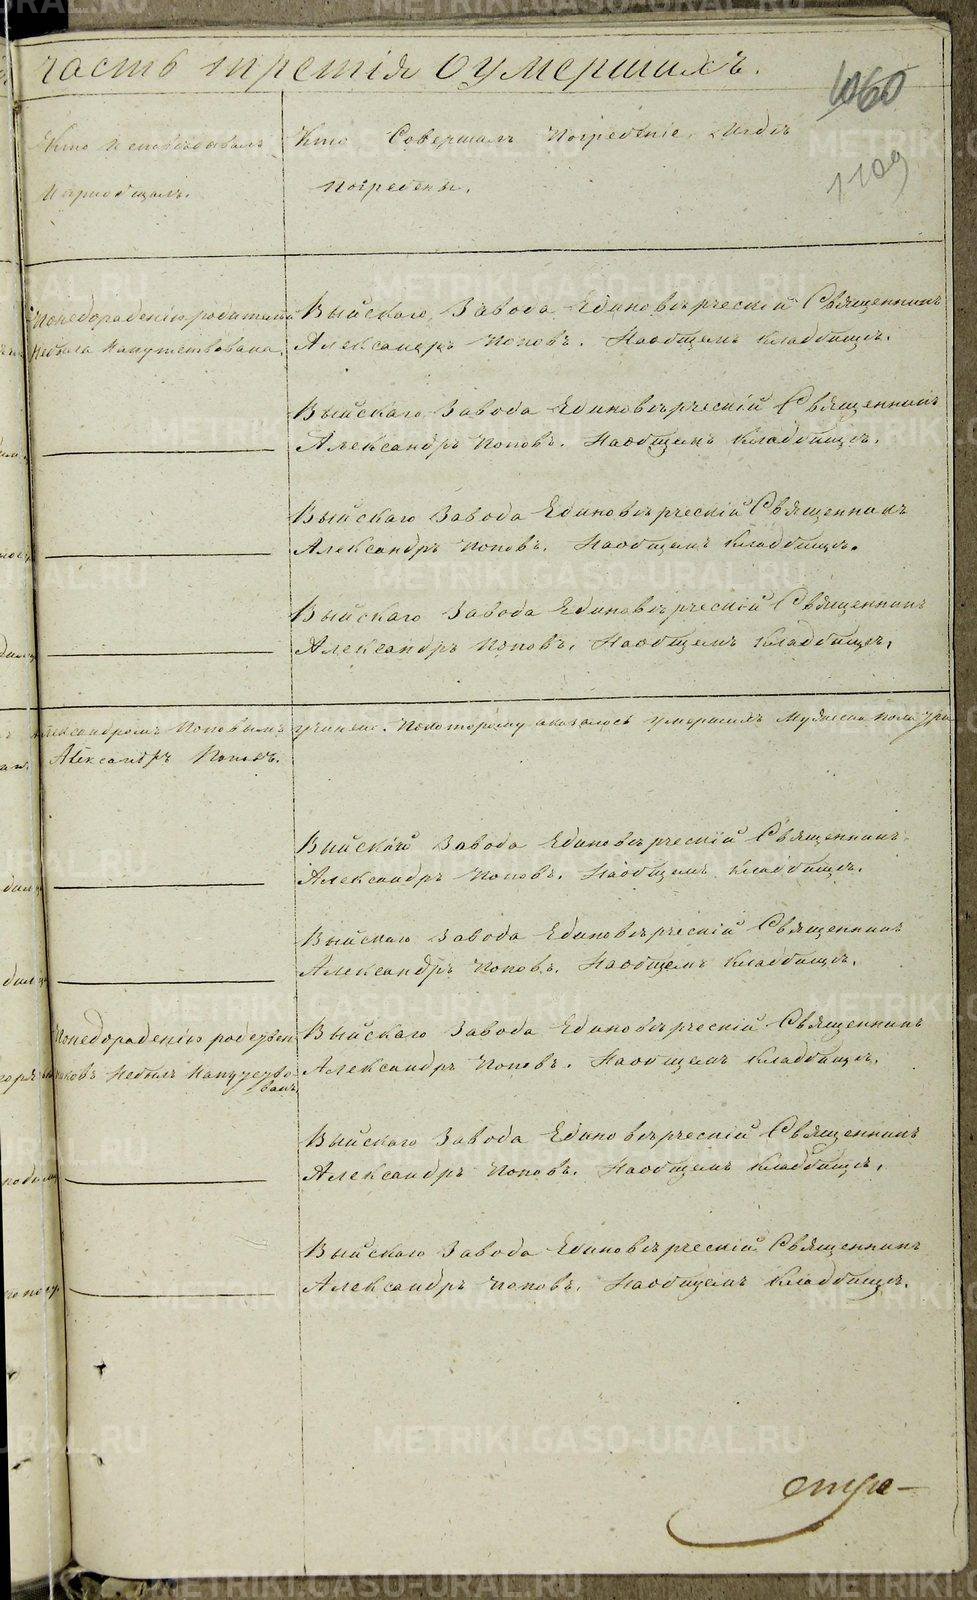 часть третія о умершихъ.
1060
1109
Кто исповѣдывалъ
и пріобщалъ.
Кто совершалъ погребеніе, и гдѣ
погребены.
По нерадѣнію родителей
небыла напутствована.
Выйскаго Завода Единовѣрческій Священникъ
Александръ Поповъ. На общемъ кладбищѣ.
Выйскаго Завода Единовѣрческій Священникъ
Александръ Поповъ. На общемъ кладбищѣ.
Выйскаго Завода Единовѣрческій Священникъ
Александръ Поповъ. На общемъ кладбищѣ.
Выйскаго Завода Единовѣрческій Священникъ
Александръ Поповъ. На общемъ кладбищѣ.
Александромъ Поповымъ учинено. По которому оказалось умершихъ мужеска пола три
Александръ Поповъ.
Выйскій Завода Единовѣрческій Священникъ
Александръ Поповъ. На общемъ кладбищѣ.
Выйскаго Завода Единовѣрческій Священникъ
Александръ Поповъ. На общемъ кладбищѣ.
По нерадѣнію родствен
никовъ небылъ напутство
ванъ
Выйскаго Завода Единовѣрческій Священникъ
Александръ Поповъ. На общемъ кладбищѣ.
Выйскаго Завода Единовѣрческій Священникъ
Александръ Поповъ. На общемъ кладбищѣ.
Выйскаго Завода Единовѣрческій Священникъ
Александръ Поповъ. На общемъ кладбищѣ.
METRIKI.GASO-URAL.RU